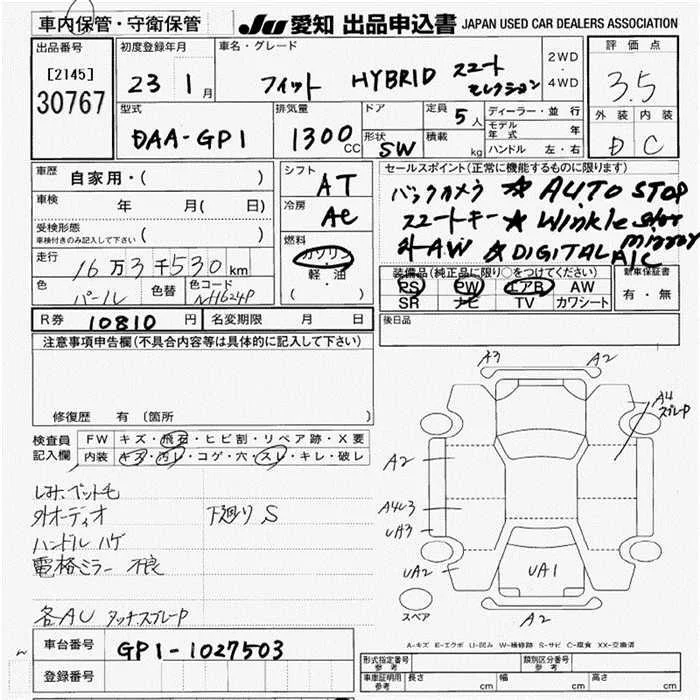 車内保管・守衛保管 JU 愛知 出品申込書 JAPAN USED CAR DEALERS ASSOCIATION
出品番号 初度登録年月 車名・グレード 2WD・4WD 評価点
[2145] 30767 23 1月 フィット HYBRID スマート セレクション 3.5
型式 排気量 ドア 定員 5人 ディーラー・並行 外装 内装
DAA-GP1 1300 CC 形状 SW 積載 kg モデル年式 年 D C
ハンドル 左・右
車歴 自家用・( ) シフト AT セールスポイント(正常に機能するものに限ります)
車検 年 月( 日) 冷房 AC バックカメラ ★ AUTO STOP
受検形態 車検付きのみ記入して下さい ( ) スマートキー ★ Winkle
燃料 ガソリン・軽油 ( ) 外AW ★ DIGITAL A/C mirror
走行 16万3千530km
装備品(純正品に限り○をつけてください) 新車保証書
色 パール 色替 色コード NH624P PS PW エアB AW 有・無
SR ナビ TV カワシート
R券 10810円 名変期限 月 日 後日品
注意事項申告欄(不具合内容等は具体的に記入して下さい)
修復歴 有 (箇所
検査員記入欄 FW キズ・飛石・ヒビ割・リペア跡・X要
内装 キズ・汚レ・コゲ・穴・スレ・キレ・破レ
シミ、ペット毛
外オーディオ 下廻り S
ハンドル ハゲ
電格ミラー 不良
各AU タッチスプレーP
A3 A2
A4 スプレーP
A2
A4U3
UA3
UA2 UA1
スペア A2
A-キズ E-エクボ U-凹み W-補修跡 S-サビ C-腐食 XX-交換済
車台番号 GP1-1027503
登録番号
形式指定番号 参考 類別区分番号 参考
車庫証明用 参考 長さ cm 幅 cm 高さ cm